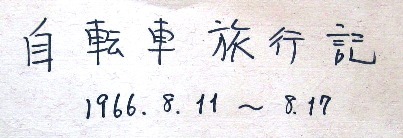 自転車旅行記
1966. 8. 11 ～ 8.17